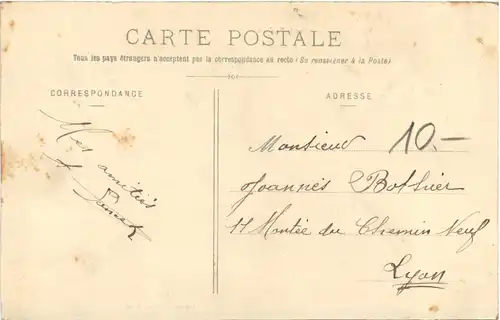 CARTE POSTALE
Tous les pays étrangers n'acceptent pas la correspondance au recto (Se renseigner à la Poste)
CORRESPONDANCE
ADRESSE
Mes amitiés
10.-
Monsieur
Joannès Bottier
11 Montée du Chemin Neuf
Lyon